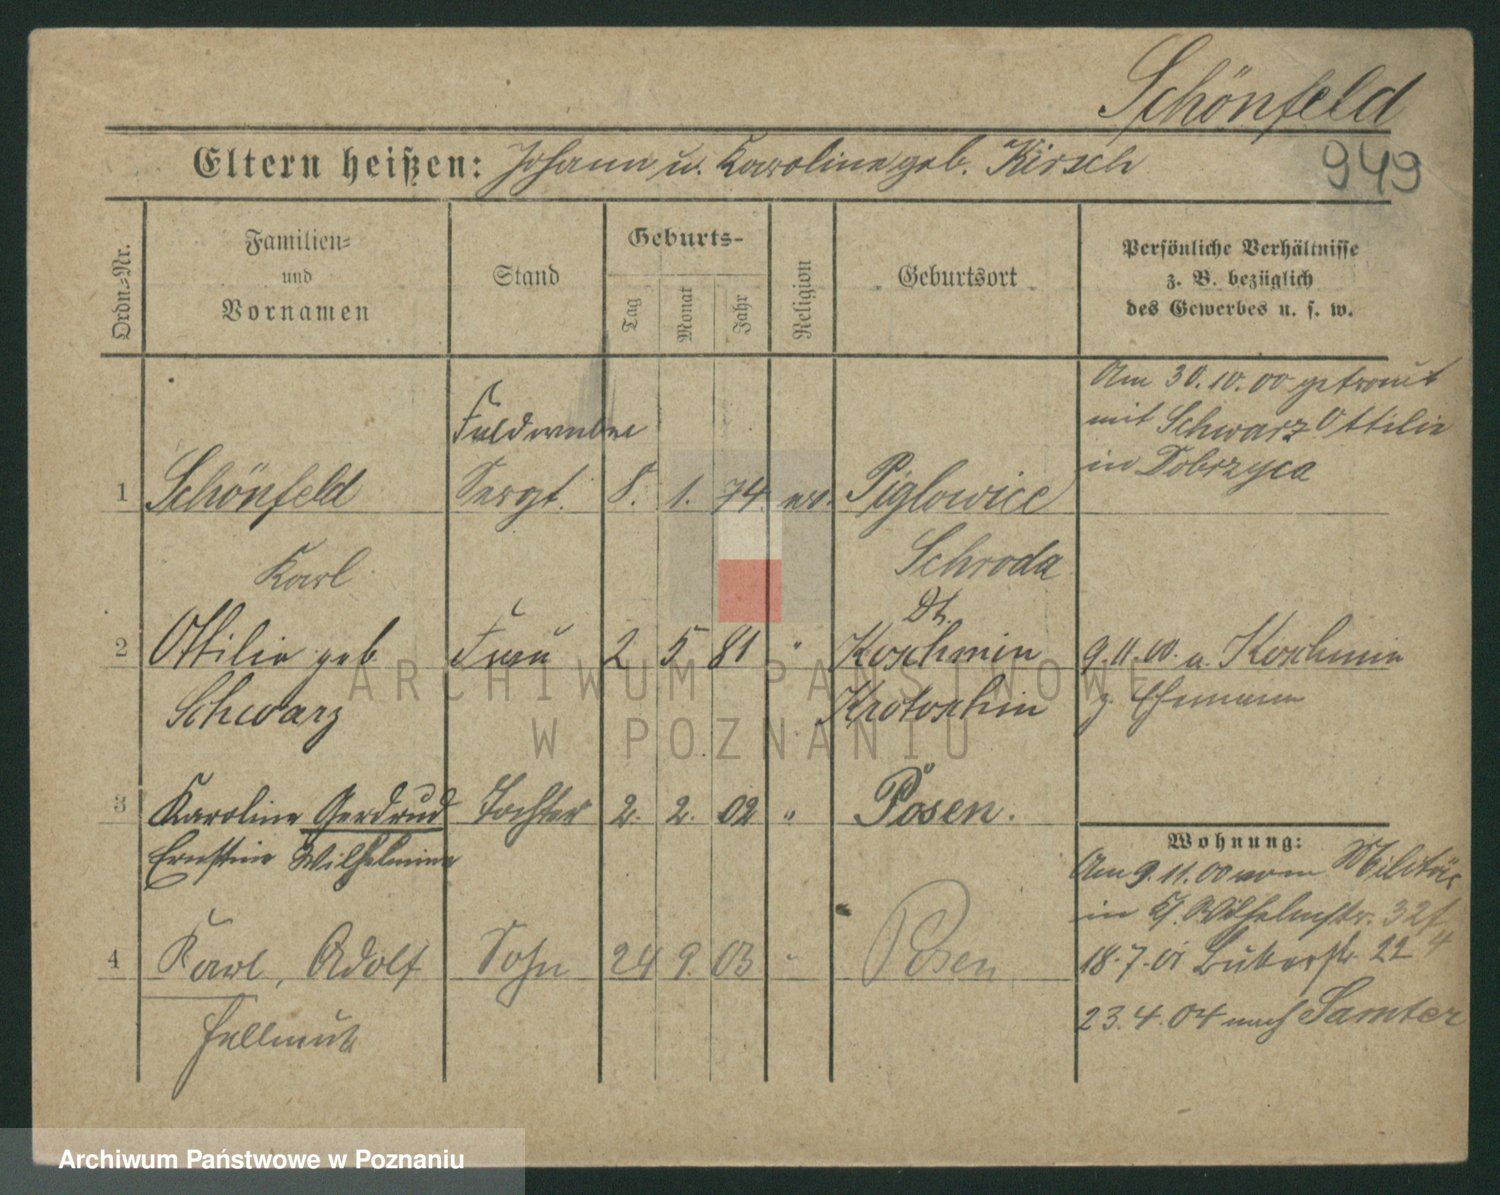 Schönfeld
Eltern heißen: Johann u. Karoline geb. Kirsch
949
Ordn.-Nr.
Familien-
und
Vornamen
Stand
Geburts-
Tag
Monat
Jahr
Religion
Geburtsort
Persönliche Verhältnisse
z. B. bezüglich
des Gewerbes u. s. w.
Am 30.10.00 getraut
mit Schwarz Ottilie
in Dobrzyca
1 Schönfeld Sergt. 8. 1. 74. ev. Piglowice
Karl
Schroda
Dt.
2 Ottilie geb Frau 2 5 81 " Koschmin 9.11.00. a. Koschmin
Schwarz Krotoschin z. Ehemann
3 Karoline Gerdrud Tochter 2. 2. 02 " Posen.
Ernstine Wilhelmine
Wohnung:
Am 9.11.00 vom Militär
in Wilhelmstr. 32
4 Karl, Adolf Sohn 24 9. 03 " Posen
18.7.01 22
23.4.04 nach Samter
Hellmut
ARCHIWUM PAŃSTWOWE
W POZNANIU
Archiwum Państwowe w Poznaniu